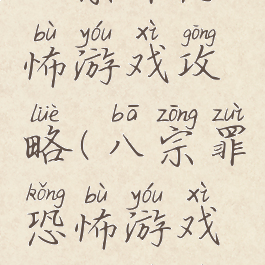 bù yóu xì gōng
怖游戏攻
lüè bā zōng zuì
略(八宗罪
kǒng bù yóu xì
恐怖游戏